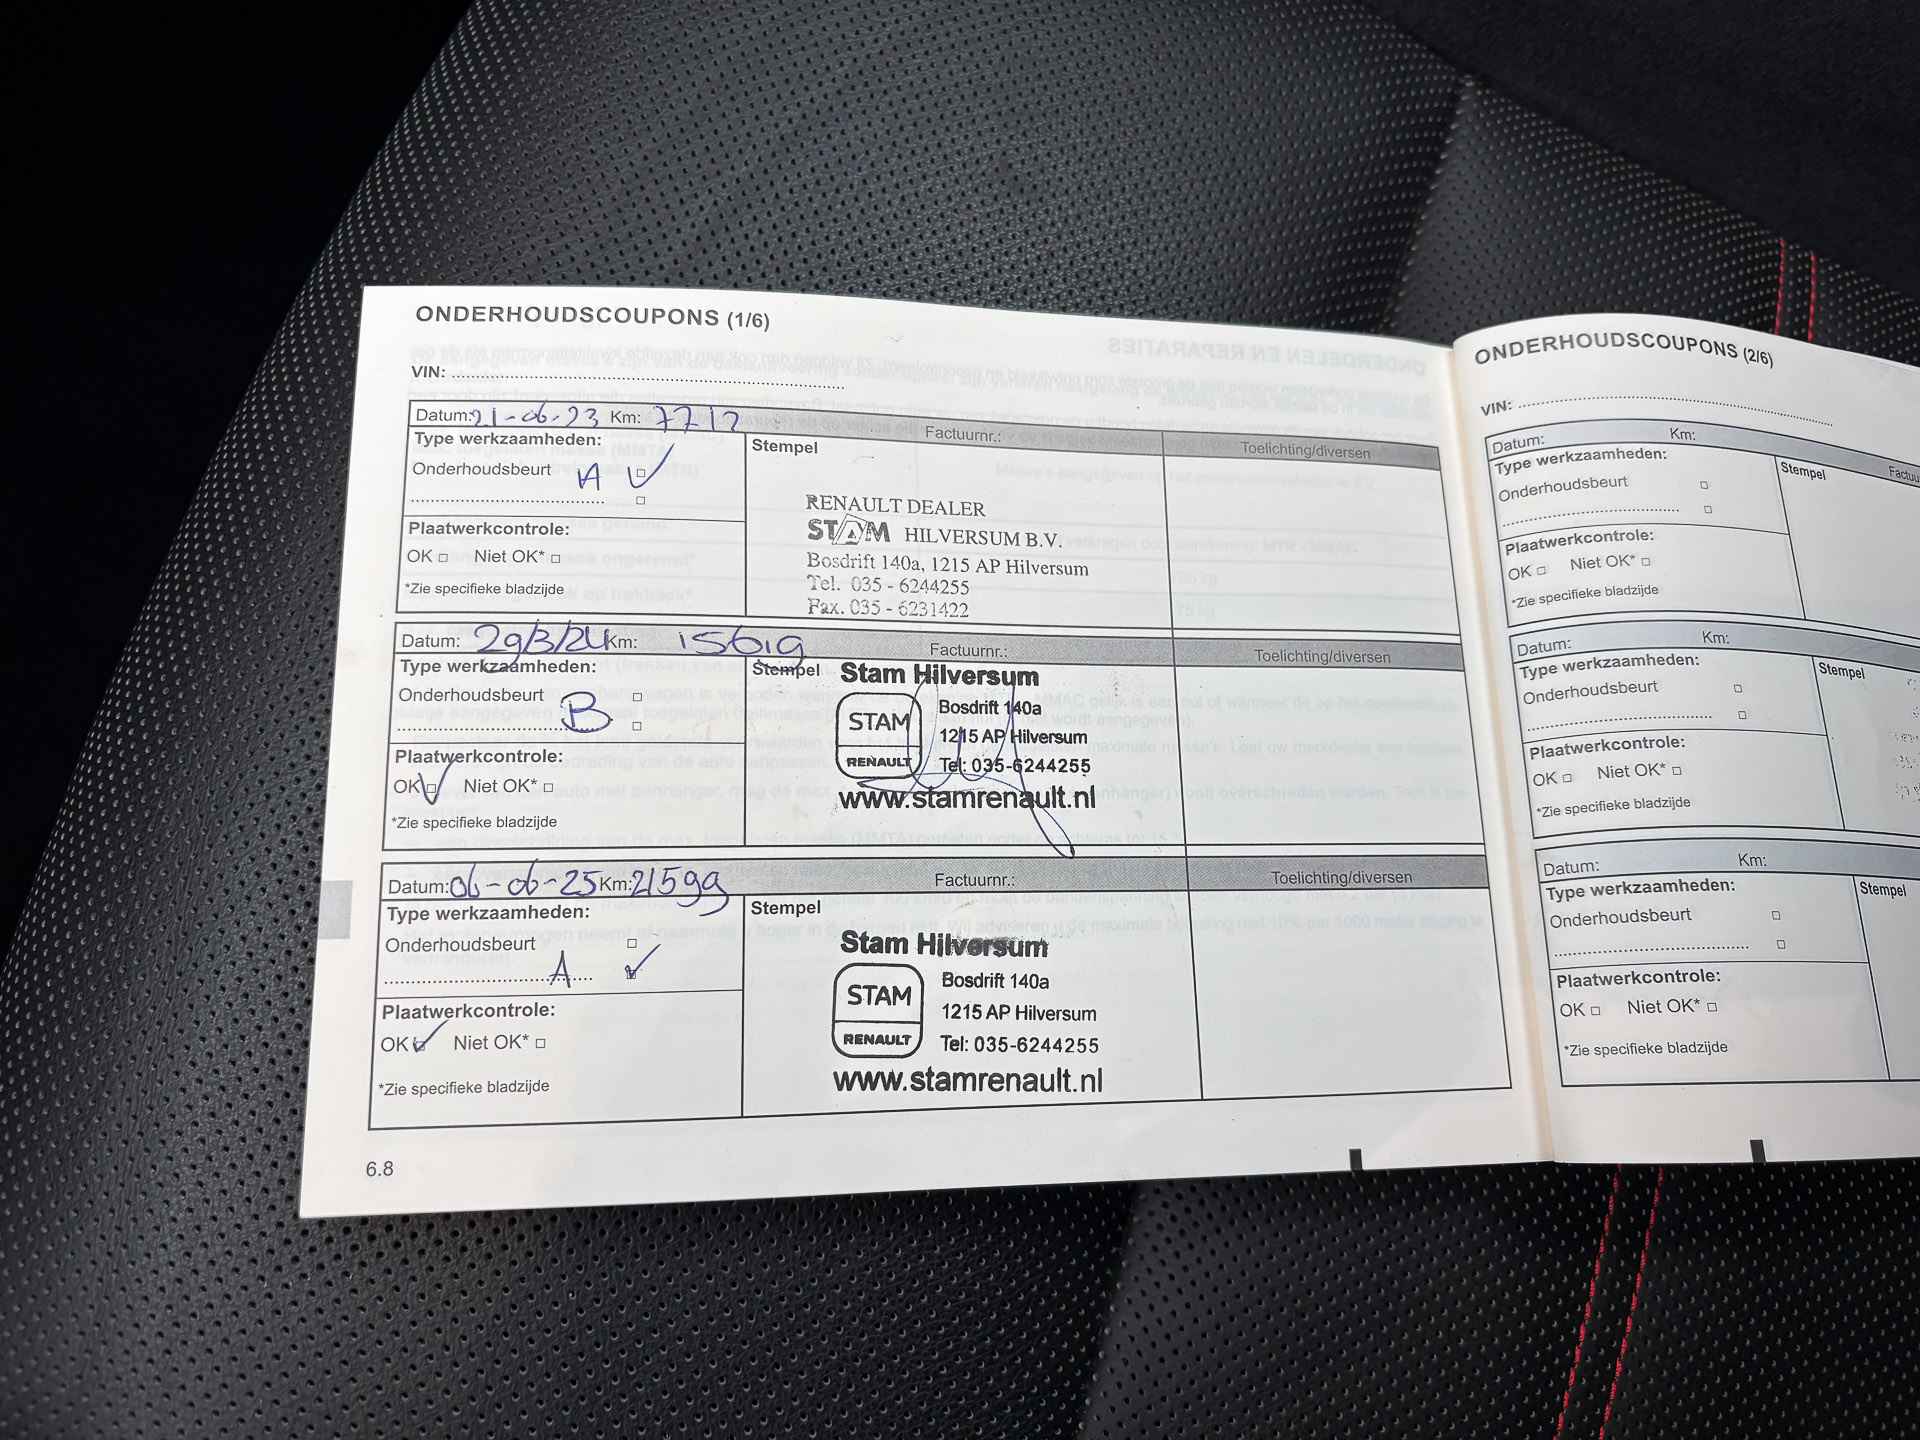 ONDERHOUDSCOUPONS (1/6)
VIN:
Datum: 21-06-23 Km: 7712
Factuurnr.:
Toelichting/diversen
Type werkzaamheden:
Stempel
Onderhoudsbeurt A
Plaatwerkcontrole:
OK Niet OK*
*Zie specifieke bladzijde
RENAULT DEALER
STAM HILVERSUM B.V.
Bosdrift 140a, 1215 AP Hilversum
Tel. 035 - 6244255
Fax. 035 - 6231422
Datum: 29/3/24 Km: 15619
Factuurnr.:
Toelichting/diversen
Type werkzaamheden:
Stempel
Onderhoudsbeurt
B
Plaatwerkcontrole:
OK Niet OK*
*Zie specifieke bladzijde
Stam Hilversum
STAM
RENAULT
Bosdrift 140a
1215 AP Hilversum
Tel: 035-6244255
www.stamrenault.nl
Datum: 06-06-25 Km: 21599
Factuurnr.:
Toelichting/diversen
Type werkzaamheden:
Stempel
Onderhoudsbeurt
A
Plaatwerkcontrole:
OK Niet OK*
*Zie specifieke bladzijde
Stam Hilversum
STAM
RENAULT
Bosdrift 140a
1215 AP Hilversum
Tel: 035-6244255
www.stamrenault.nl
6.8
ONDERHOUDSCOUPONS (2/6)
VIN:
Datum: Km:
Type werkzaamheden:
Stempel
Onderhoudsbeurt
Plaatwerkcontrole:
OK Niet OK*
*Zie specifieke bladzijde
Datum: Km:
Type werkzaamheden:
Stempel
Onderhoudsbeurt
Plaatwerkcontrole:
OK Niet OK*
*Zie specifieke bladzijde
Datum: Km:
Type werkzaamheden:
Stempel
Onderhoudsbeurt
Plaatwerkcontrole:
OK Niet OK*
*Zie specifieke bladzijde